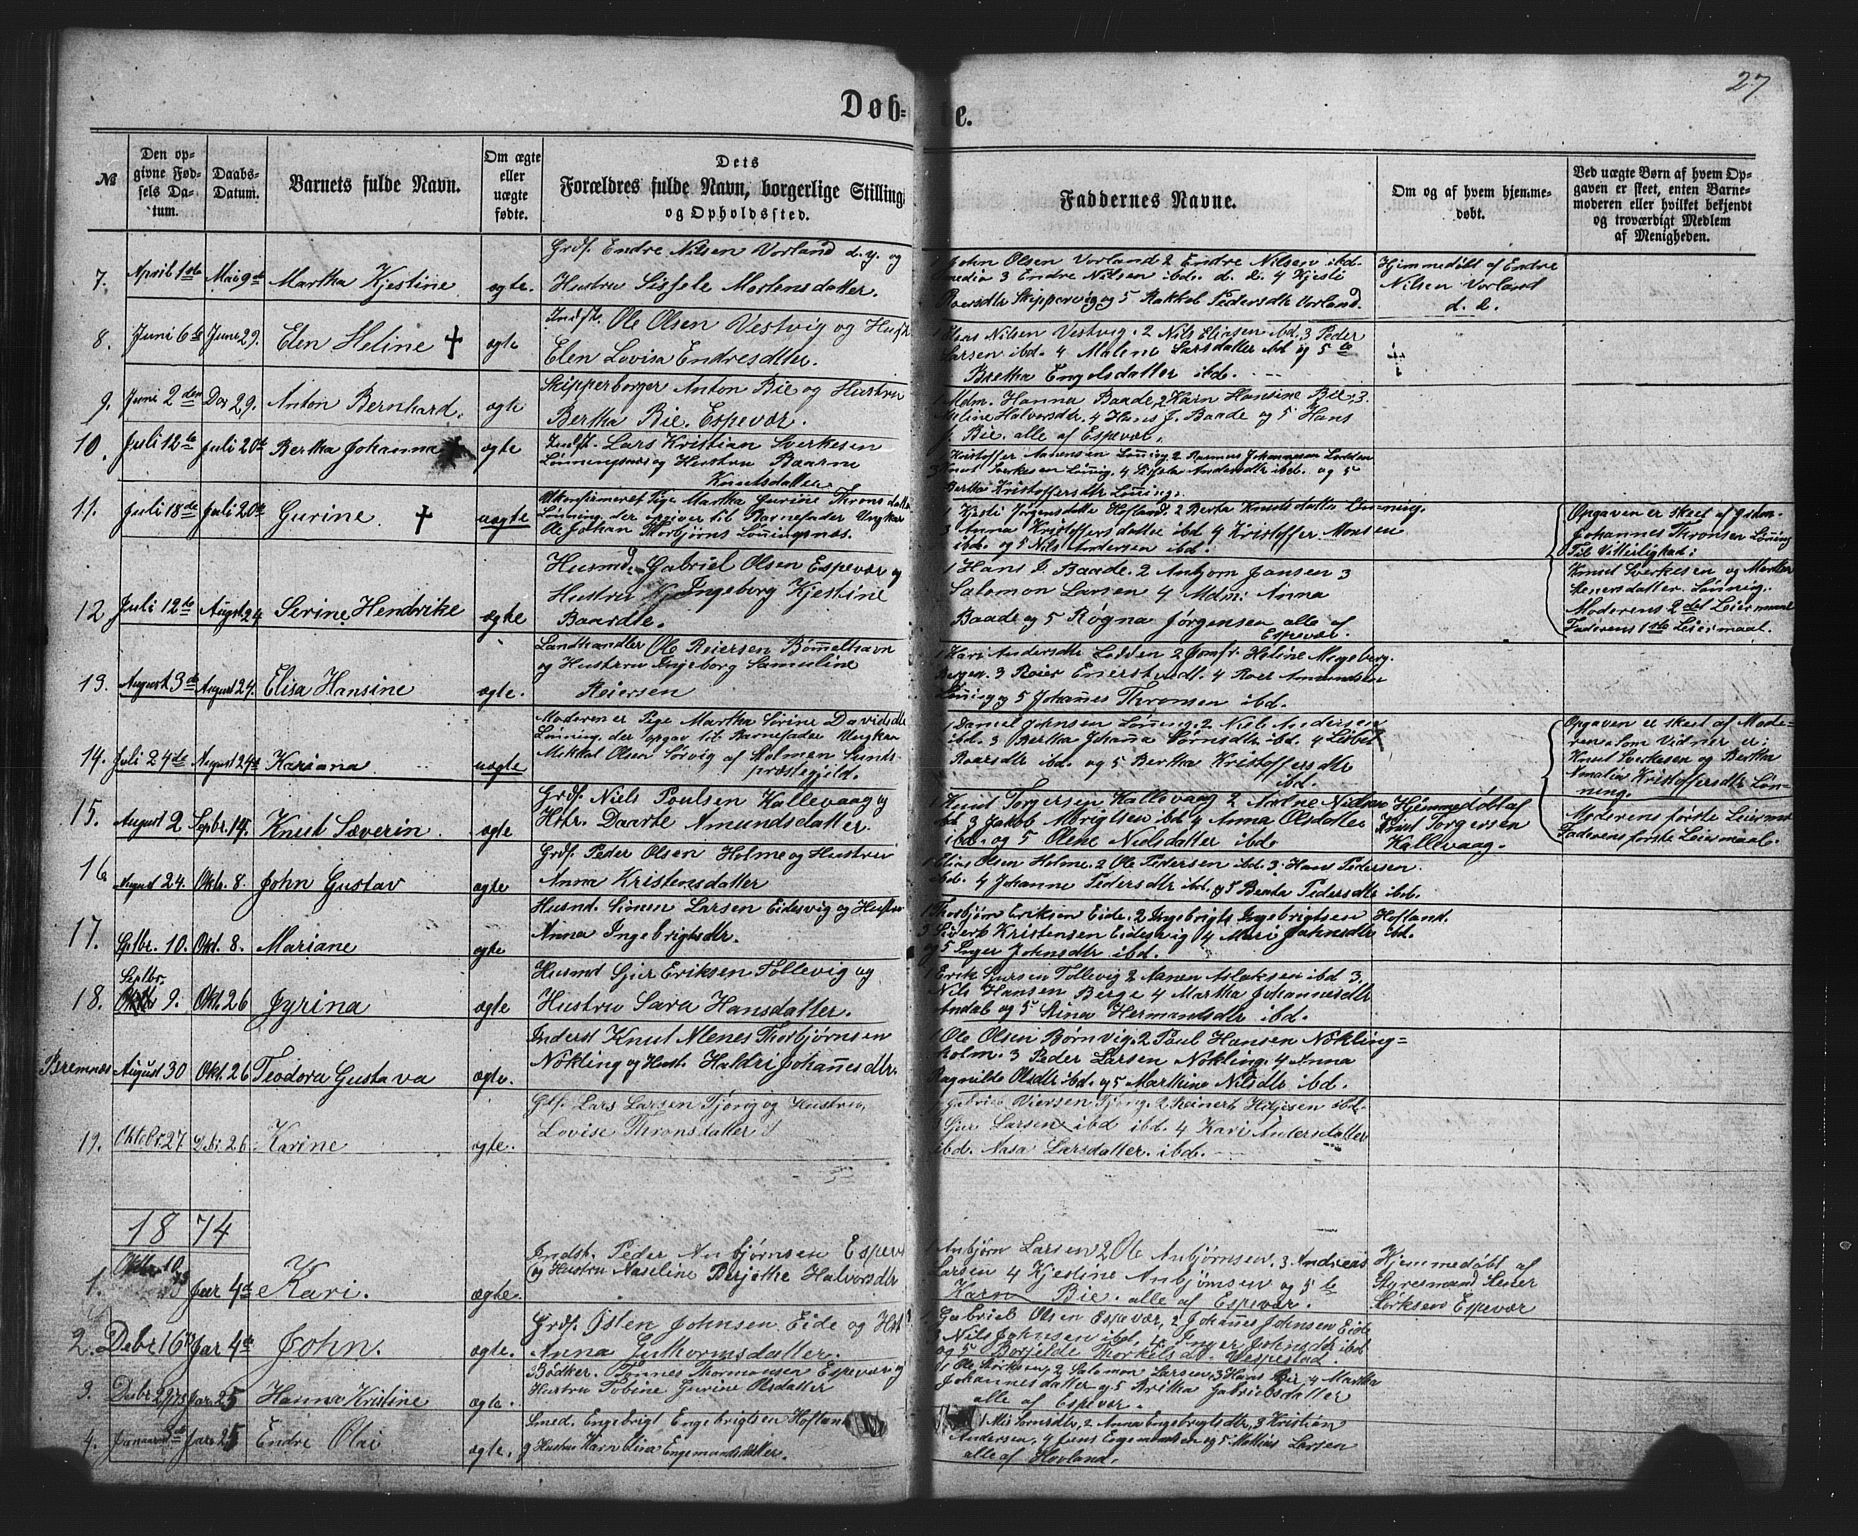 27
Døb=te.
№
Den opgivne Fødsels Datum.
Daabs-Datum.
Barnets fulde Navn.
Om ægte eller uægte fødte.
Dets Forældres fulde Navn, borgerlige Stilling og Opholdssted.
Faddernes Navne.
Om og af hvem hjemmedøbt.
Ved uægte Børn af hvem Opgaven er skeet, enten Barnemoderen eller hvilket bekjendt og troværdigt Medlem af Menigheden.
7. April 1ste Mai 9de Martha Kjestine ægte.
Grdf. Endre Nilsen Vorland d.y. og
Hustru Sissele Mortensdatter.
1 John Olsen Vorland 2 Endre Nilsen ibd.
3 Endre Nilsen ibd. d. e. 4 Kjesti
Skippervig og 5 Rakkel Pedersdtr Vorland.
Hjemmedøbt af Endre
Nilsen Vorland
d. e.
8. Juni 6te Juni 29. Elen Heline † ægte
Indst. Ole Olsen Vestvig og Hustr
Elen Lovisa Endresdtter.
Nilsen Vestvig. 2 Nils Eliasen ibd. 3 Peder
Larsen ibd. 4 Malene Larsdatter ibd og 5te
Bretha Engelsdatter ibd.
9. Juni 2den Do 29. Anton Bernhard. ægte
Skipperborger Anton Bie og Hustru
Bertha Bie. Espevær.
1 Mdm. Hanna Baade, 2 Karn Hansine Bie, 3.
Meline Halvorsdtr. 4 Hans J. Baade og 5 Hans
J. Bie. alle af Espevær.
10. Juli 12te Juli 20de Bertha Johanna ægte
Indst. Lars Kristian Sverkesen
Lønningsnæs og Hustru Baarne
Knutsdatter
Kristoffer Lønnig, 2 Rasmus Johannesen
3 Knut Sverkesen Lønnig. 4 Andersdtr ibd. og 5
Bertha Kristoffersdtr Lønnig.
11. Juli 18de Juli 20de Gurine. † uægte
Ukonfirmeret Pige Martha Gurine Thronsdatter
Lønning, der opgiver til Barnefader Ungkar
Ole Johan Thorbjørns Lønningsnæs.
1 Kisti Jørgensdatter Hofland, 2 Berta Knutsdatter Lønning.
3 Anna Kristoffersdatter ibd 4 Kristoffer Monsen
ibd. og 5 Nils Andersen ibd.
Opgaven er skeet af
Johannes Thronsen Lønning
Til Vitterlighed:
Knut Sverkesen og Martha
Lønnig.
Moderens 2det Leiermaal
Faderens 1ste Leiermaal.
12. Juli 12te August 24 Serine Hendrike ægte
Husmd. Gabriel Olsen Espevær og
Hustru Ingeborg Kjestine
Baardte.
1 Hans J. Baade. 2 Anbjørn Jansen 3
Salomon Larsen 4 Mdm: Anna
Baade og 5 Røgna Jørgensen alle af
Espevær.
13. August 3de August 24. Elisa Hansine ægte.
Landhandler Ole Reiersen Bømmelhavn
og Hustru Ingeborg Samuline
Reiersen
1 Kari Andersdtr 2 Jomfr. Heline
Bergen. 3 Reier 4 Roer Amundsen
Lønnig og 5 Johannes Thronsen ibd.
14. Juli 24de August 24de Kariana uægte
Moderen er Pige Martha Serine Davidsdtr
Lønning, der opgav til Barnefader Ungkar
Mikkal Olsen Sørvig af Holmen Sunds
præstegjeld.
1 Daniel Johnsen Lønnig. 2 Niels Andersen
ibd. 3 Bertha Johanna ibd. 4 Lisbet
Roarsdtr ibd. og 5 Bertha Kristoffersdtr
ibd.
Opgaven er skeet af Mode=
ren. Som Vidner er:
Knut Sverkesen og Bertha
Amalia Kristoffersdtr Løn=
ning.
Moderens første Leiermaal
Faderens første Leiermaal.
15. August 2 Septbr. 14. Knut Severin. ægte
Grdf. Niels Poulsen Kallevaag og
Hstr. Daarte Amundsdatter.
1 Knut Torgersen Kallevaag 2 Nielsen
ibd 3 Jakob ibd 4 Anna Olsdatter
ibd. og 5 Olene Nielsdatter ibd.
Hjemmedøbt af
Knut Torgersen
Kallevaag.
16 August 24. Oktr. 8. John Gustav ægte
Grdf. Peder Olsen Holme og Hustru
Anna Kristensdatter
Elias Olsen Holme. 2 Ole Pedersen ibd. 3. Hans Pedersen
ibd. 4 Johanne Pedersdtr ibd. og 5 Beata Pedersdtr ibd.
17. Sptbr. 10. Okt. 8. Mariane ægte
Husmd. Simen Larsen Eidesvig og Hustru
Anna Ingebrigtsdtr.
1 Thorbjørn Eriksen Eide. 2 Ingebrigt Ingebrigtsen Hofland.
3 Sivert Kristensen Eidesvig 4 Mari Johnsdtr ibd.
og 5 Inger Johnsdtr ibd.
18. Septbr. 9. Okt. 26 Gyrina ægte
Husmd Gjer Eriksen Tollevig og
Hustru Sara Hansdatter.
1 Erik Larsen Tollevig 2 Aanen Aslaksen ibd 3
Nils Hansen Berge 4 Martha Johannesdtr
og 5 Stina Hermansdtr ibd.
Bremnes August 30 Okt. 26 Teodora Gustava ægte.
Inderst Knut Mænes Thorbjørnsen
Nøkling og Hust. Haldri Johannesdtr.
1 Ole Olsen Børnvig. 2 Paul Hansen Nøkling=
holm. 3 Peder Larsen Nøkling. 4 Anna
Ragnilde Olsdtr ibd. og 5 Marthine Nilsdtr ibd.
19. Oktobr. 27 26. Karine ægte.
Grdf. Lars Larsen Tjong og Hustru
Lovise Thronsdatter
2 Reinert ibd.
3 Gjer Larsen ibd 4 Kari Andersdatter
ibd. Nasa Larsdatter. ibd.
1874
1. Oktbr 10 73 Jar 4de Kari. ægte.
Indst. Peder Anbjørnsen Espev
og Hustru Naseline Berjethe Halvorsdtr
1 Anbjørn Larsen 2 Ole Anbjørnsen, 3 Andreas
Larsen 4 Kjestine Anbjørnsen og 5te
Karn Bie. alle af Espevær.
Hjemmedøbt af
Styresmand
Espevær
2. Debr 16 73 Jar 4de John. ægte.
Grdf. Østen Johnsen Eide og Hstr
Anna Guthormsdatter.
1. Gabriel Olsen Espevær, 2 Johannes Johnsen Eide
3 Nils Johnsen ibd. 4 Inger Johnsdtr ibd
og 5 Borjelde Thorkelsdtr. Vespestad.
3. Debr 29 73 Jar. 25 Hanna Kristine ægte.
Bødker. Tønnes Thormodsen Espevær og
Hustru Tobine Gurine Olsdatter
1 Ole 2 Salomon Larsen, 3 Hans Bie, 4 Martha
Johannesdatter og 5 Britha Gabrielsdatter
alle af Espevær.
4. Januar Jar 25 Endre Olai ægte.
Smed. Engebrigt Engebrigtsen Hofland
og Hustru Karn Lisa Engemundsdatter.
1 2 Anna Engebrigtsdtr, 3 Kristian
Andersen, 4 Jens Engemundsen og 5 Mathias Larsen
alle af Hovland.